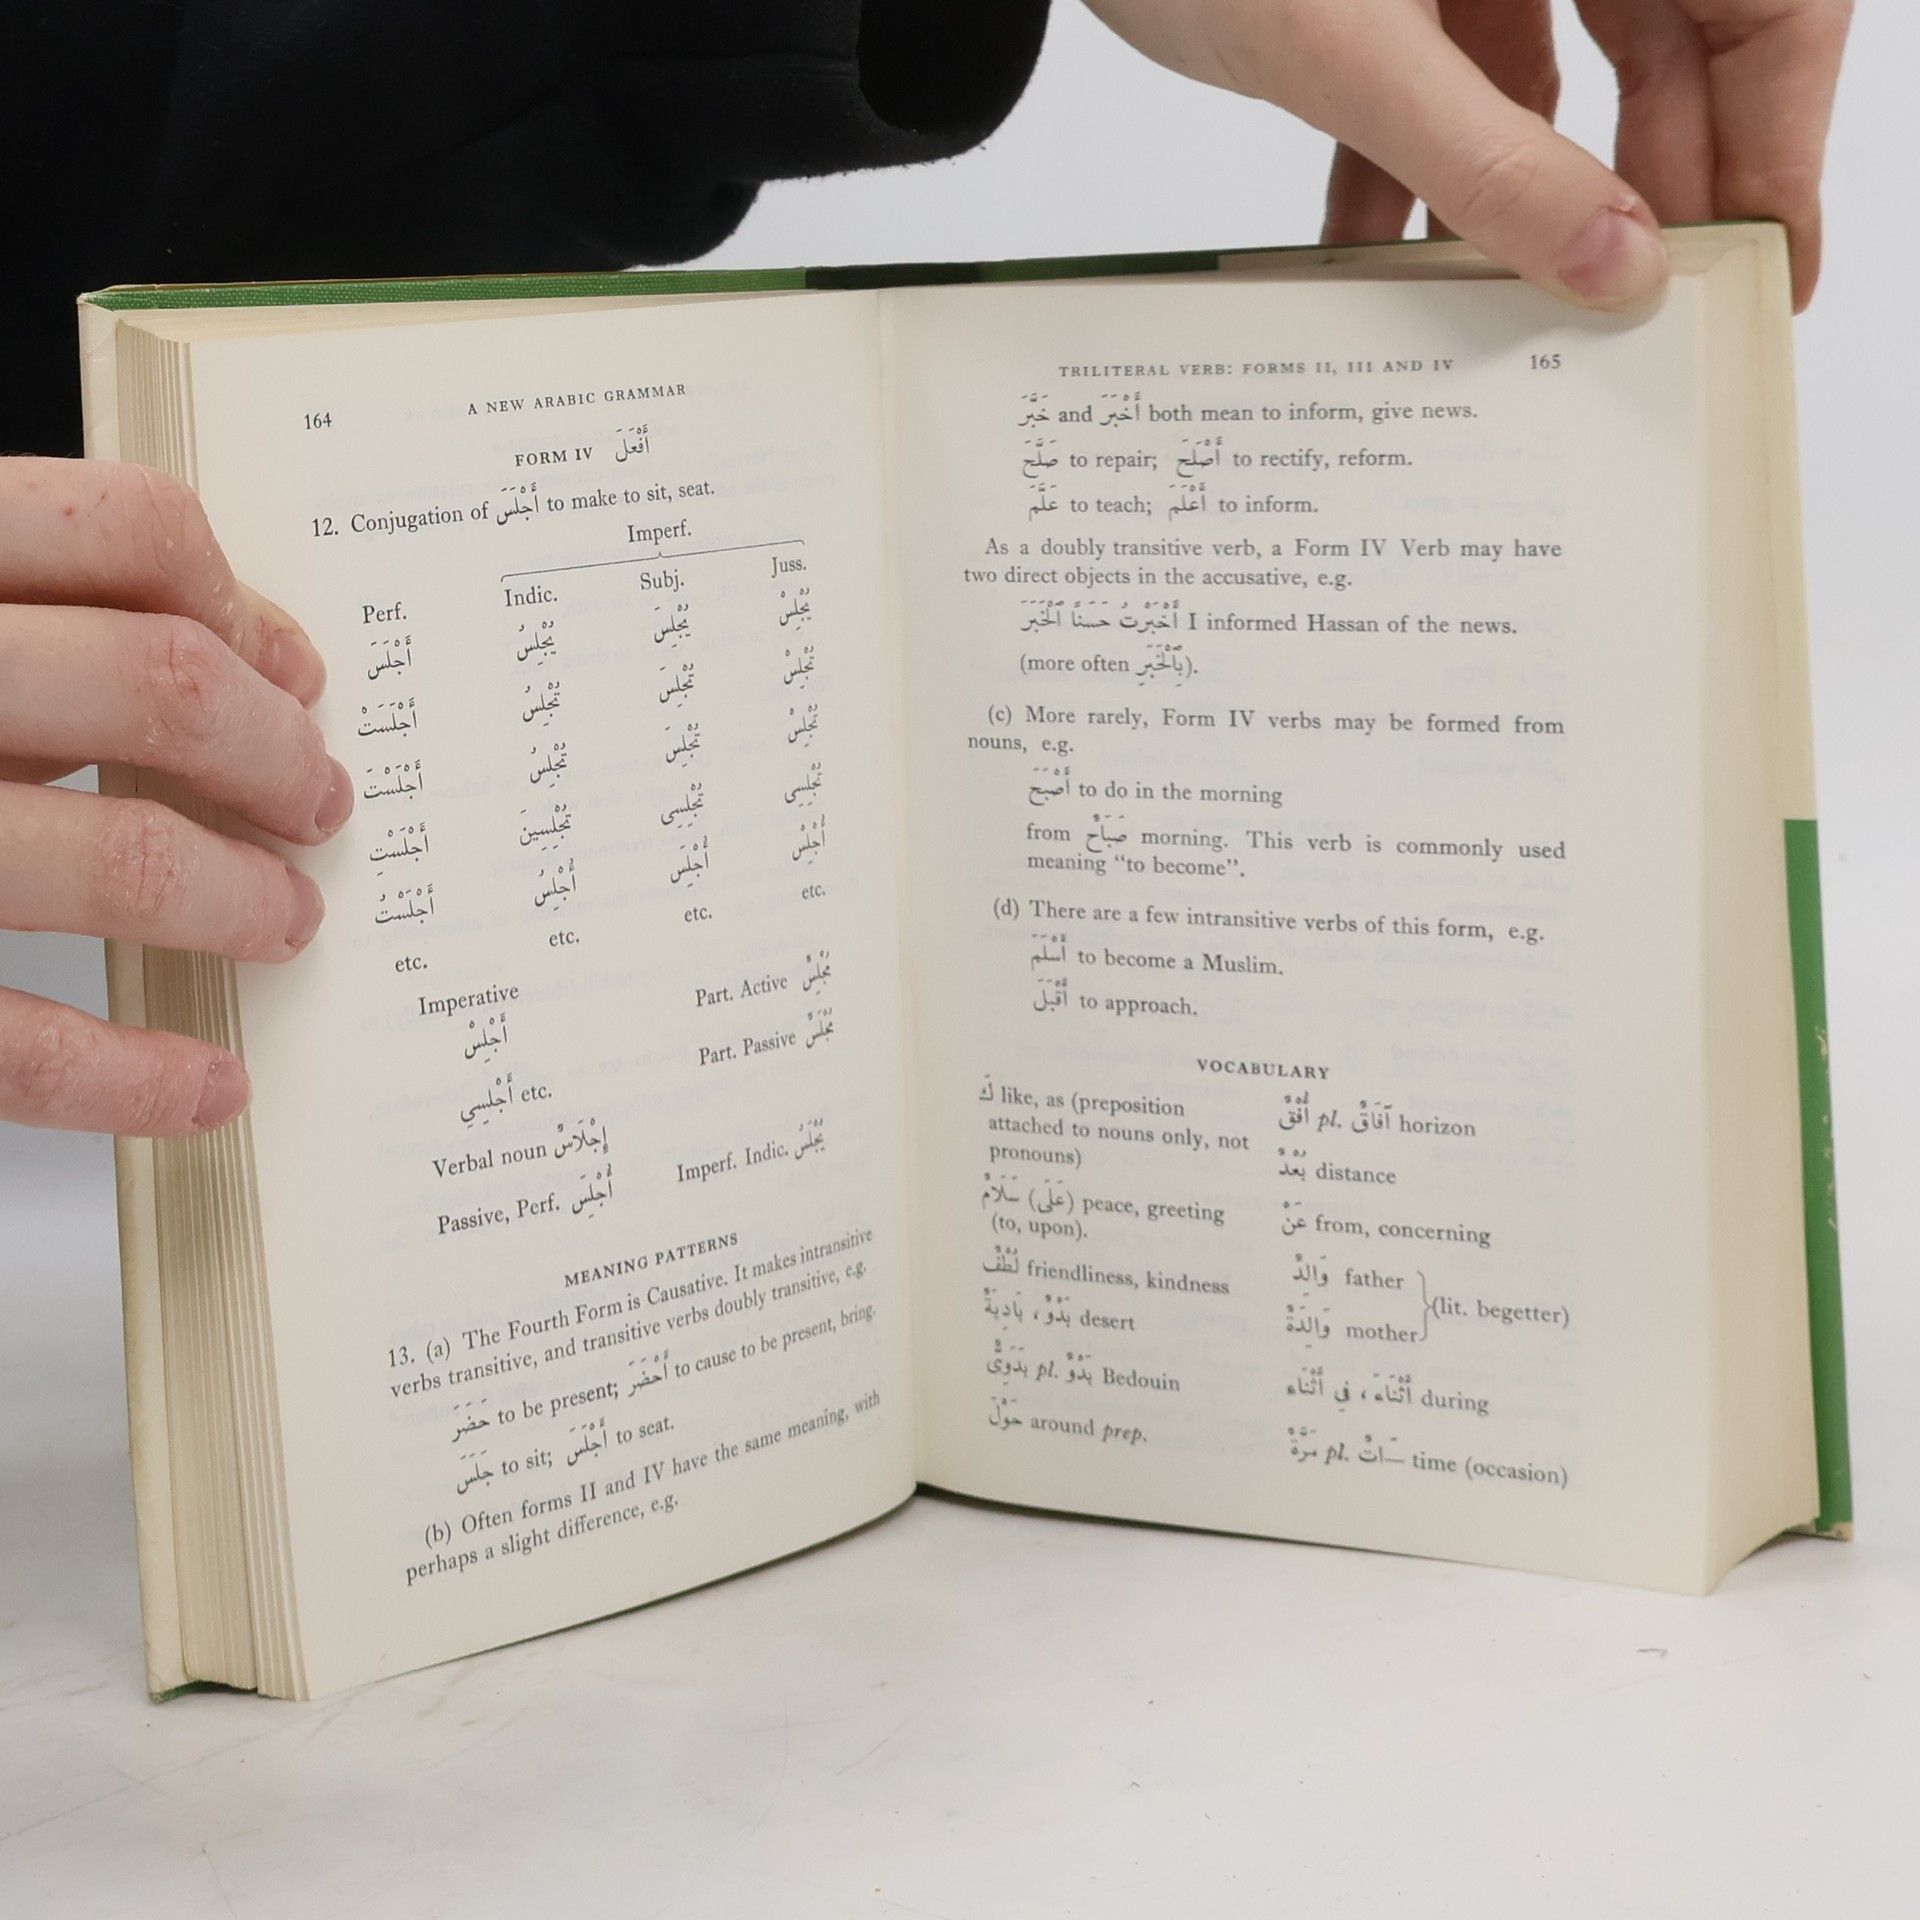 164
A NEW ARABIC GRAMMAR
FORM IV أَفْعَلَ
12. Conjugation of أَجْلَسَ to make to sit, seat.
Imperf.
Perf. Indic. Subj. Juss.
أَجْلَسَ يُجْلِسُ يُجْلِسَ يُجْلِسْ
أَجْلَسَتْ تُجْلِسُ تُجْلِسَ تُجْلِسْ
أَجْلَسْتَ تُجْلِسُ تُجْلِسَ تُجْلِسْ
أَجْلَسْتِ تُجْلِسِينَ تُجْلِسِى تُجْلِسِى
أَجْلَسْتُ أُجْلِسُ أُجْلِسَ أُجْلِسْ
etc. etc. etc. etc.
Imperative Part. Active مُجْلِسٌ
أَجْلِسْ Part. Passive مُجْلَسٌ
أَجْلِسِي etc.
Verbal noun إِجْلَاسٌ
Passive, Perf. أُجْلِسَ Imperf. Indic. يُجْلَسُ
MEANING PATTERNS
13. (a) The Fourth Form is Causative. It makes intransitive
verbs transitive, and transitive verbs doubly transitive, e.g.
حَضَرَ to be present; أَحْضَرَ to cause to be present, bring.
جَلَسَ to sit; أَجْلَسَ to seat.
(b) Often forms II and IV have the same meaning, with
perhaps a slight difference, e.g.
TRILITERAL VERB: FORMS II, III AND IV
165
خَبَّرَ and أَخْبَرَ both mean to inform, give news.
صَلَّحَ to repair; أَصْلَحَ to rectify, reform.
عَلَّمَ to teach; أَعْلَمَ to inform.
As a doubly transitive verb, a Form IV Verb may have
two direct objects in the accusative, e.g.
أَخْبَرْتُ حَسَنًا ٱلْخَبَرَ I informed Hassan of the news.
(more often بِٱلْخَبَرِ).
(c) More rarely, Form IV verbs may be formed from
nouns, e.g.
أَصْبَحَ to do in the morning
from صَبَاحٌ morning. This verb is commonly used
meaning “to become”.
(d) There are a few intransitive verbs of this form, e.g.
أَسْلَمَ to become a Muslim.
أَقْبَلَ to approach.
VOCABULARY
كَ like, as (preposition
attached to nouns only, not
pronouns)
سَلَامٌ (عَلَى) peace, greeting
(to, upon).
لُطْفٌ friendliness, kindness
بَدْوٌ ، بَادِيَةٌ desert
بَدَوِىٌّ pl. بَدْوٌ Bedouin
حَوْلَ around prep.
أُفُقٌ pl. آفَاقٌ horizon
بُعْدٌ distance
عَنْ from, concerning
وَالِدٌ father
(lit. begetter)
وَالِدَةٌ mother
أَثْنَاءَ ، فِي أَثْنَاءِ during
مَرَّةٌ pl. ـَاتٌ time (occasion)